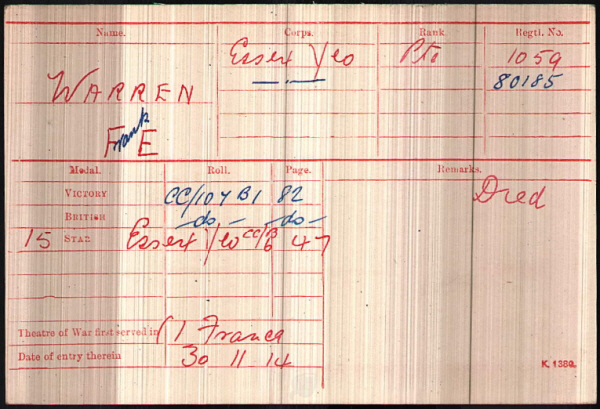 Name. Corps. Rank. Regtl. No.
Essex Yeo Pte 1059
WARREN 80185
Frank
F E
Medal. Roll. Page. Remarks.
VICTORY CC/104 B1 82 Dced
BRITISH —do— —do—
15 STAR Essex Yeo CC/B 6 47
Theatre of War first served in (1 France
Date of entry therein 30 11 14
K. 1380.